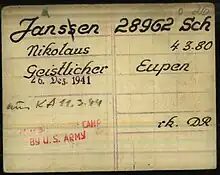 Janssen 28962 Sch
Nikolaus 4.3.80
Geistlicher Eupen
26. Dez. 1941
aus KA 11.3.44
CAMP
BY U.S. ARMY
rk. DR